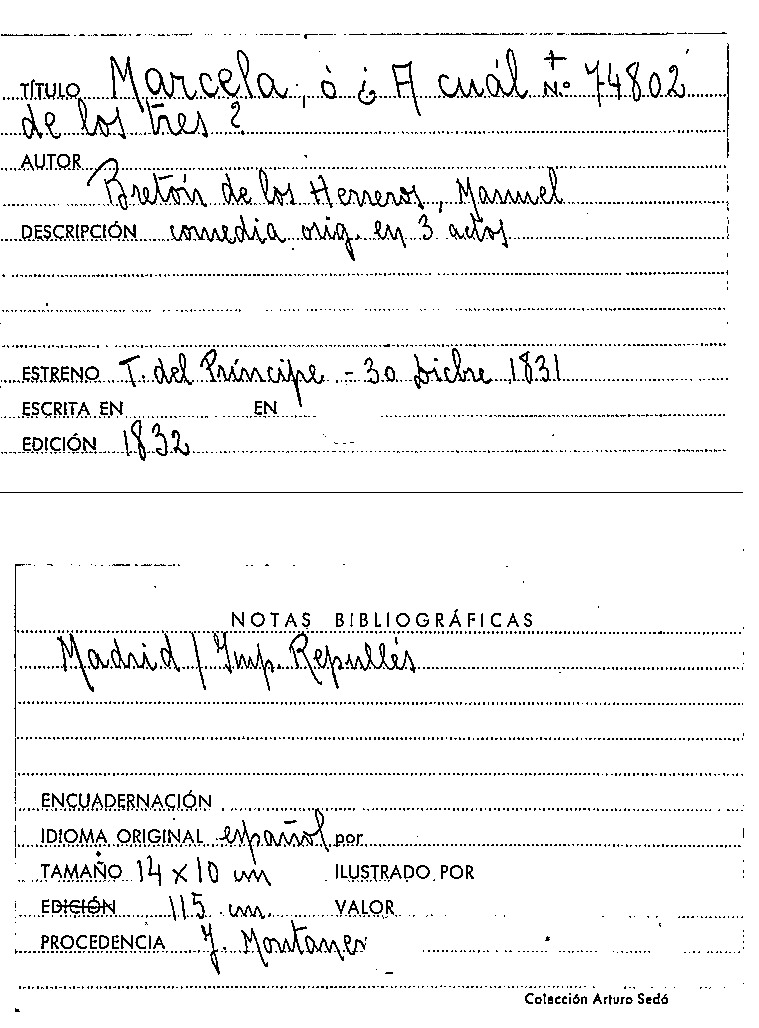 TÍTULO Marcela, ó ¿A cuál + Nº 74802
de los tres?
AUTOR
Bretón de los Herreros, Manuel
DESCRIPCIÓN comedia orig. en 3 actos
ESTRENO T. del Príncipe - 30 Dicbre 1831
ESCRITA EN EN
EDICIÓN 1832
NOTAS BIBLIOGRÁFICAS
Madrid / Imp. Repullés
ENCUADERNACIÓN
IDIOMA ORIGINAL español por
TAMAÑO 14 x 10 cm ILUSTRADO POR
EDICIÓN 115 cm. VALOR
PROCEDENCIA J. Montaner
Colección Arturo Sedó